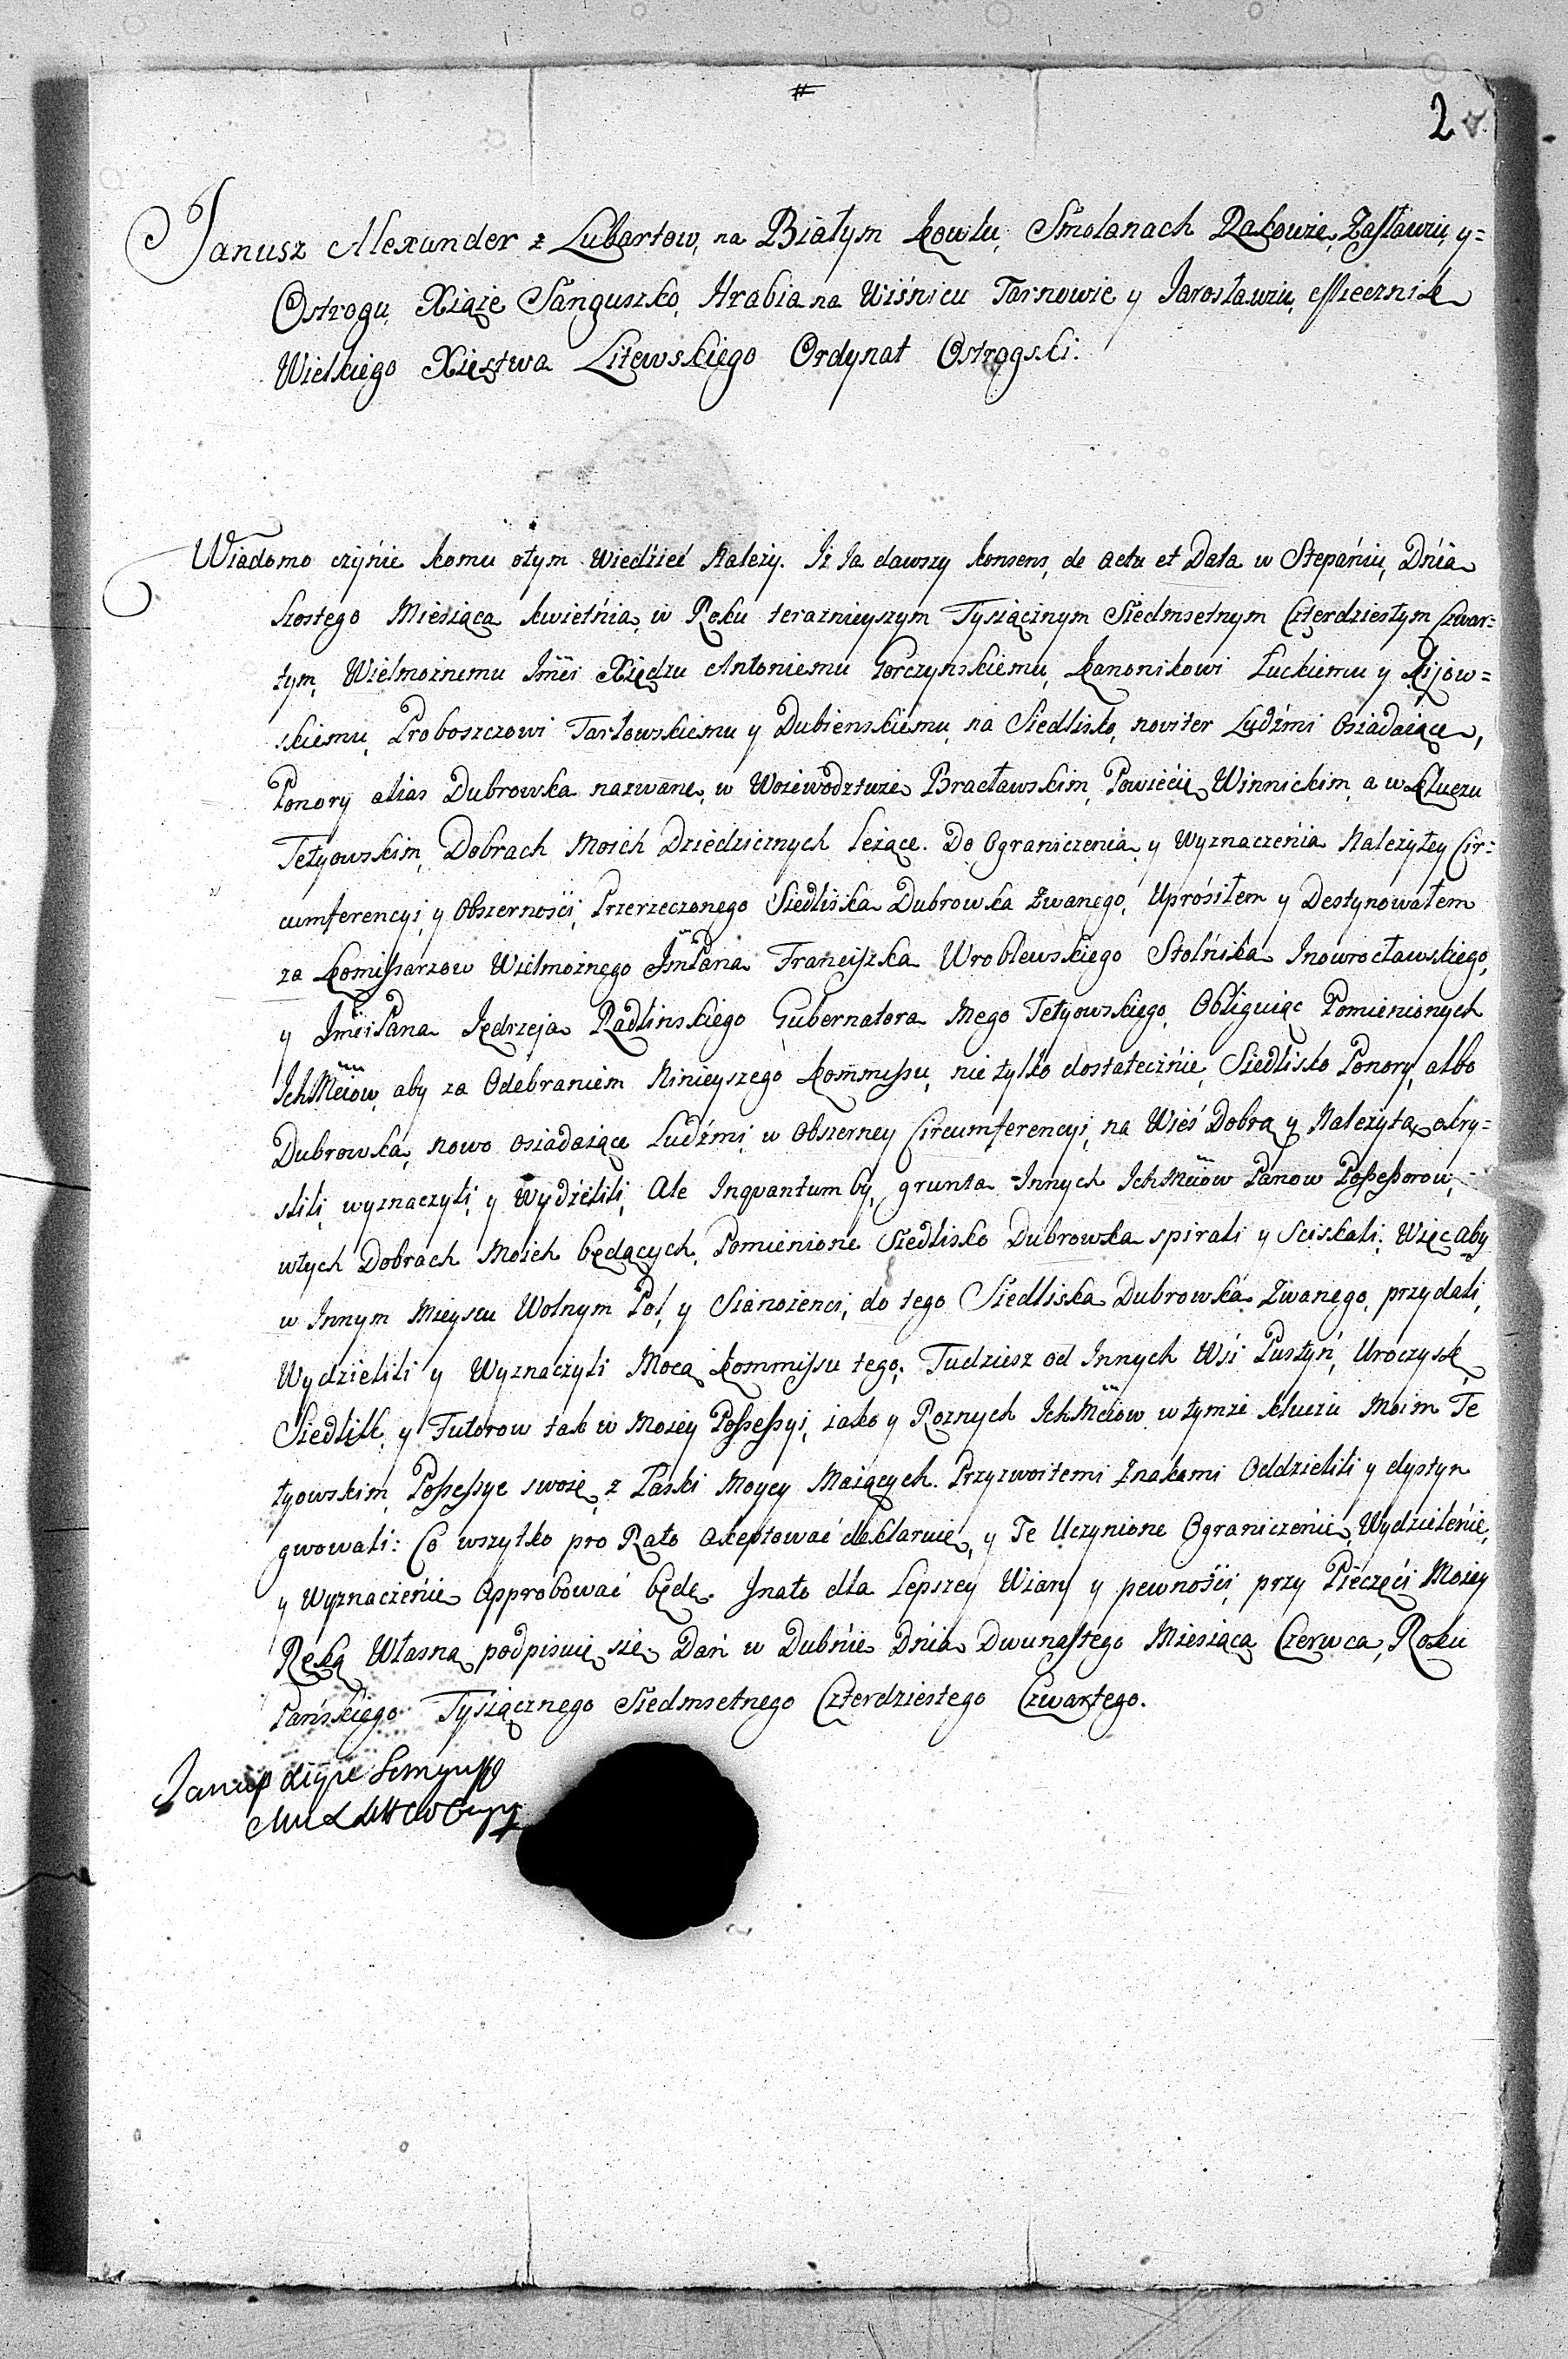 #
2
Janusz Alexander z Lubartow, na Białym Kowlu, Smolanach Rakowie, Zasławiu, y=
Ostrogu, Xiąże Sanguszko, Hrabia na Wiśniczu Tarnowie y Jarosławiu, Miecznik
Wielkiego Xięstwa Litewskiego Ordynat Ostrogski.
Wiadomo czynię komu otym wiedzieć Należy. Iż Ja dawszy konsens, de Actu et Data w Stepaniu, Dnia
szostego Miesiąca kwietnia, w Roku teraznieyszym Tysiącznym Siedmsetnym Czterdziestym Czwar=
tym, Wielmożnemu Jmci Xiędzu Antoniemu Gorczynskiemu, Kanonikowi Łuckiemu y Kijow=
skiemu, Proboszczowi Tarłowskiemu y Dubienskiemu, na Siedlisko, noviter Ludźmi osiadaiące,
Ponory alias Dubrowka nazwane, w Woiewodztwie Bracławskim, Powiecie Winnickim, a w Kluczu
Tetyowskim, Dobrach Moich Dziedzicznych leżące. Do Ograniczenia, y Wyznaczenia Należytey Cir=
cumferencyi, y Obszernosci, Przerzeczonego Siedliska Dubrowka Zwanego, Uprosiłem y Destynowałem
za Komissarzow Wielmożnego JmPana Franciszka Wroblewskiego Stolnika Inowrocławskiego,
y JmciPana Jędrzeja Radlinskiego Gubernatora Mego Tetyowskiego, Obliguiąc Pomienionych
IchMciow, aby za Odebraniem Ninieyszego Kommissu, nie tylko dostatecznie, Siedlisko Ponory, albo
Dubrowka, nowo osiadaiące Ludźmi, w Obszerney Circumferencyi, na Wieś Dobrą y Należytą okry=
slili, wyznaczyli, y Wydzielili, Ale Inquantum by, grunta Innych IchMciow Panow Possessorow,
wtych Dobrach Moich będących, Pomienione Siedlisko Dubrowka spirali y Sciskali, Więc aby
w Innym Mieyscu Wolnym Pol, y Sianożenci, do tego Siedliska Dubrowka Zwanego, przydali,
Wydzielili y Wyznaczyli Mocą Kommissu tego; Tudziesz od Innych Wsi Pustyń, Uroczysk,
Siedlisk, y Futorow tak w Moiey Possessyi, iako y Roznych IchMciow w tymze kluczu Moim Te
tyowskim, Possessye swoie, z Łaski Moyey Maiących. Przyzwoitemi Znakami Oddzielili y dystyn
gwowali: Co wszytko pro Rato akceptować deklaruię, y Te Uczynione Ograniczenie, Wydzielenie,
y Wyznaczenie Approbować będę. Jnato dla Lepszey Wiary y pewności, przy Pieczęci Moiey
Ręką Własną podpisuię się. Dań w Dubnie Dnia Dwunastego Miesiąca Czerwca, Roku
Pańskiego Tysiącznego Siedmsetnego Czterdziestego Czwartego.